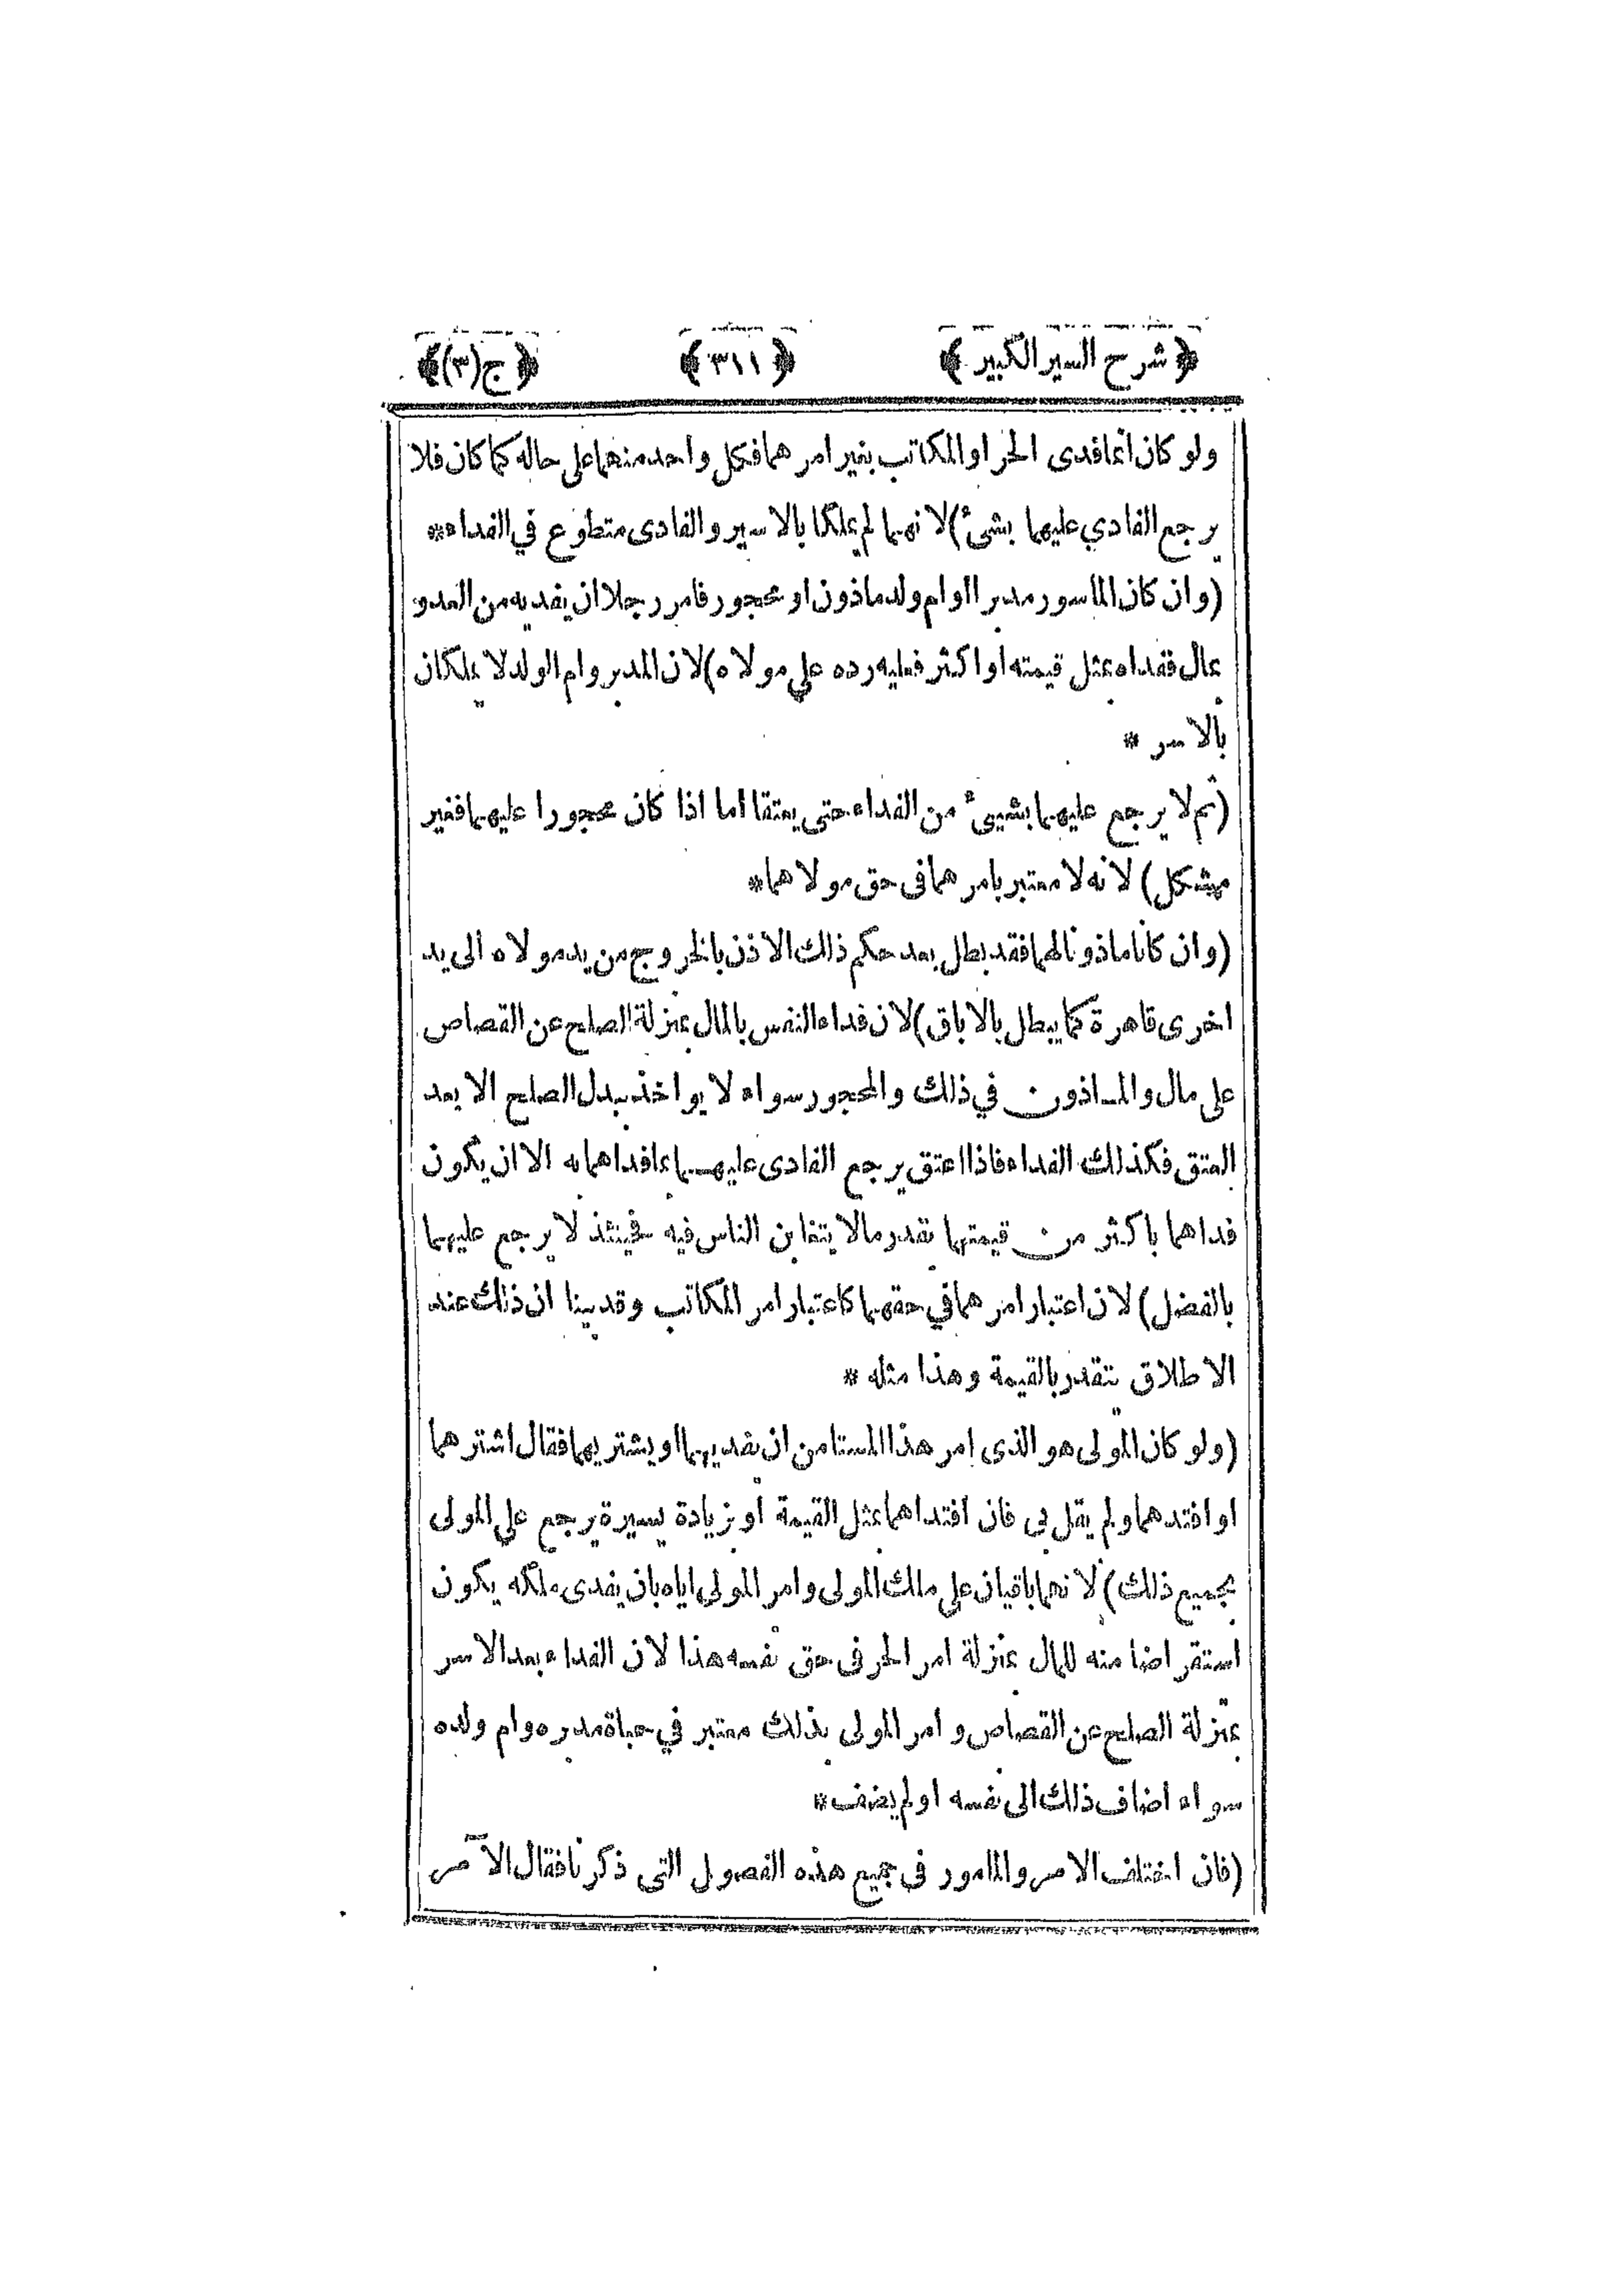 ﴿ شرح السير الكبير ﴾ ﴿ ٣١١ ﴾ ﴿ ج(٣) ﴾
ولو كان انما فدى الحر او المكاتب بغير امرهما فكل واحد منهما على حاله كما كان فلا
يرجع الفادي عليهما بشئ) لانهما لم يملكا بالاسير والفادى متطوع في الفداء*
(وان كان الماسور مدبرا او ام ولد ماذون او محجور فامر رجلا ان يفديه من العدو
بمال ففداه بمثل قيمته او اكثر فعليه رده على مولاه) لان المدبر وام الولد لا يملكان
بالاسر *
(ثم لا يرجع عليهما بشيئ من الفداء حتى يعتقا اما اذا كان محجورا عليهما فغير
مشكل) لانه لا معتبر بامرهما فى حق مولاهما*
(وان كانا ماذونا لهما فقد بطل بعد حكم ذلك الاذن بالخروج من يد مولاه الى يد
اخرى قاهرة كما يبطل بالاباق) لان فداء النفس بالمال بمنزلة الصلح عن القصاص
على مال والمــاذون في ذلك والمحجور سواء لا يواخذ ببدل الصلح الا بعد
العتق فكذلك الفداء فاذا اعتق يرجع الفادى عليهــما بما فداهما به الا ان يكون
فداهما باكثر من قيمتهما بقدر ما لا يتغابن الناس فيه فحينئذ لا يرجع عليهما
بالفضل) لان اعتبار امرهما في حقهما كاعتبار امر المكاتب وقد بينا ان ذلك عند
الاطلاق يتقدر بالقيمة وهذا مثله *
(ولو كان المولى هو الذى امر هذا المستامن ان يفديهما او يشتريهما فقال اشترهما
او افتدهما ولم يقل لى فان افتداهما بمثل القيمة او بزيادة يسيرة يرجع على المولى
بجميع ذلك) لانهما باقيان على ملك المولى وامر المولى اياه بان يفدى ملكه يكون
استقراضا منه للمال بمنزلة امر الحر فى حق نفسه هذا لان الفداء بعد الاسر
بمنزلة الصلح عن القصاص و امر المولى بذلك معتبر في حياة مدبره وام ولده
سواء اضاف ذلك الى نفسه او لم يضف*
(فان اختلف الامر والمامور فى جميع هذه الفصول التى ذكرنا فقال الآمر